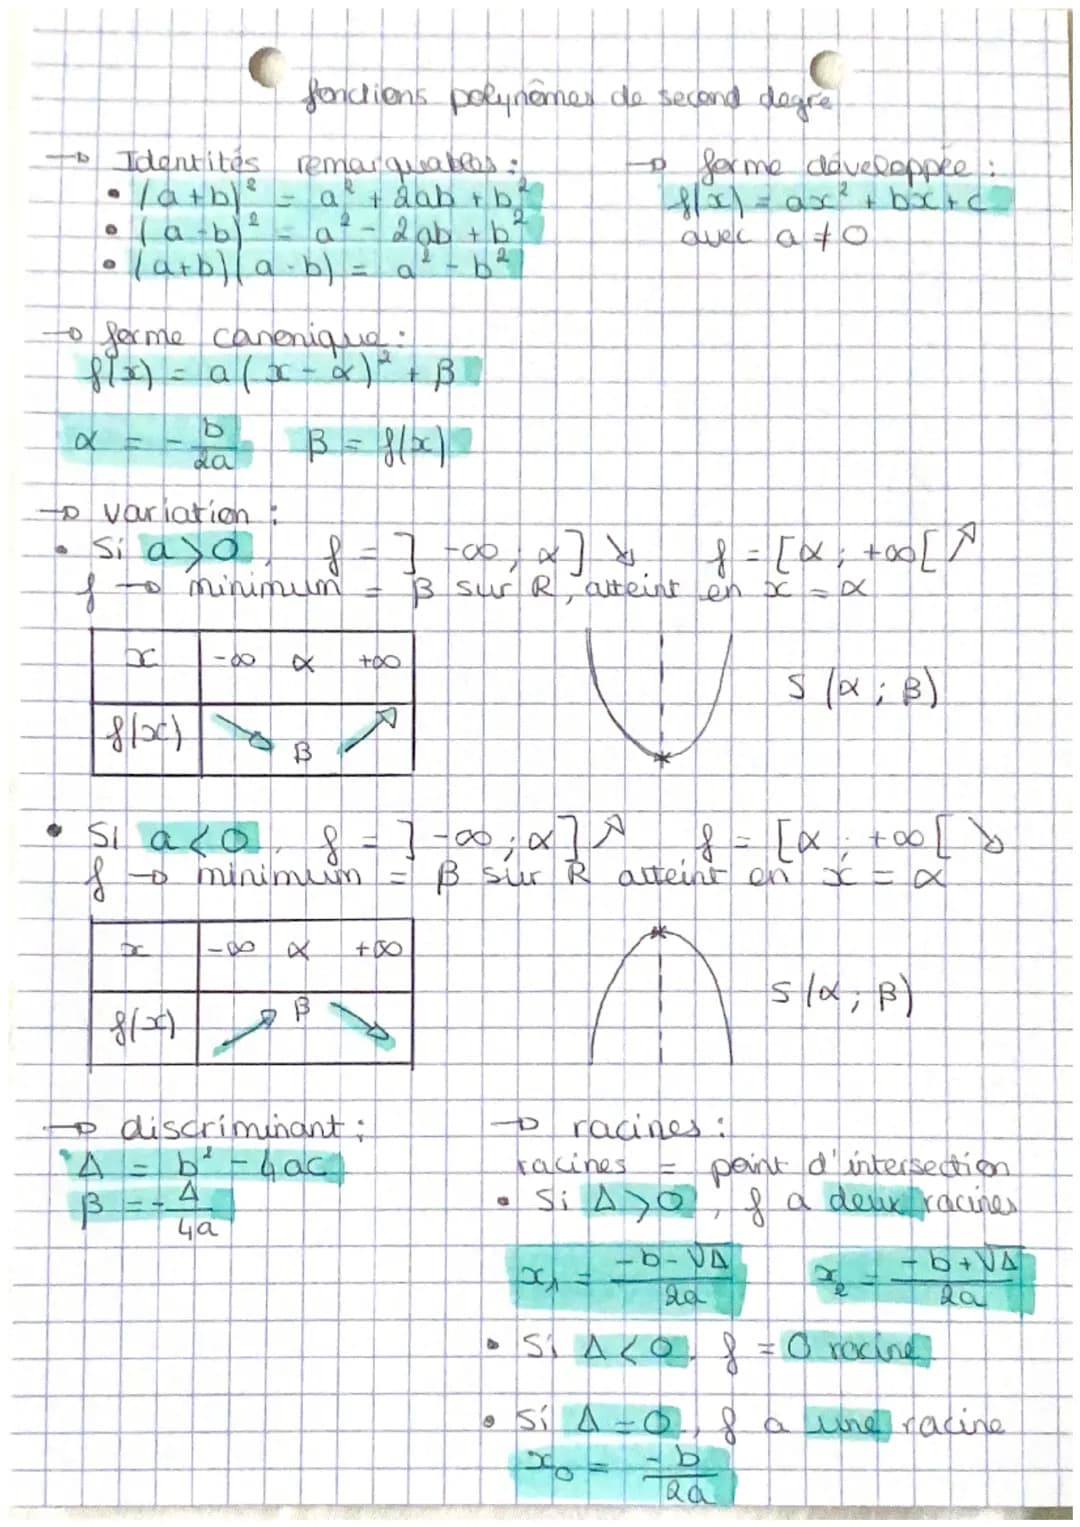 fonctions polynômes de second degré
→ Identités remarquables :
• (a+b)² = a² + 2ab + b²
• (a-b)² = a² - 2ab + b²
• (a+b)(a-b) = a² - b²
→ forme développée :
f(x) = ax² + bx + c
avec a ≠ 0
→ forme canonique :
f(x) = a(x - α)² + β
α = -b/2a β = f(x)
→ variation :
• Si a>0, f = ]-∞; α] ↘ f = [α; +∞[ ↗
f → minimum = β sur R, atteint en x = α
x -∞ α +∞
f(x) ↘ β ↗
S (α ; β)
• Si a<0, f = ]-∞; α] ↗ f = [α; +∞[ ↘
f → minimum = β sur R atteint en x = α
x -∞ α +∞
f(x) ↗ β ↘
S (α ; β)
→ discriminant :
Δ = b² - 4ac
β = -Δ/4a
→ racines :
racines = point d'intersection
• Si Δ>0, f a deux racines
x₁ = -b-√Δ/2a x₂ = -b+√Δ/2a
• Si Δ<0, f = 0 racine
• Si Δ=0, f a une racine
x₀ = -b/2a